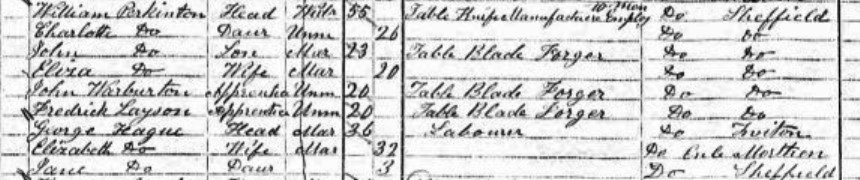 William Parkinton Head Widr 55 Table Knife Manufacturer 10 Men Employ Do Sheffield
Charlotte Do Daur Unm 26 Do Do
John Do Son Mar 23 Table Blade Forger Do Do
Eliza Do Wife Mar 20 Do Do
John Warburton Apprentice Unm 20 Table Blade Forger Do Do
Fredrick Layson Apprentice Unm 20 Table Blade Forger Do Do
George Hague Head Mar 36 Labourer Do Treeton
Elizabeth Do Wife Mar 32 Do Morthen
Jane Do Daur 3 Do Sheffield